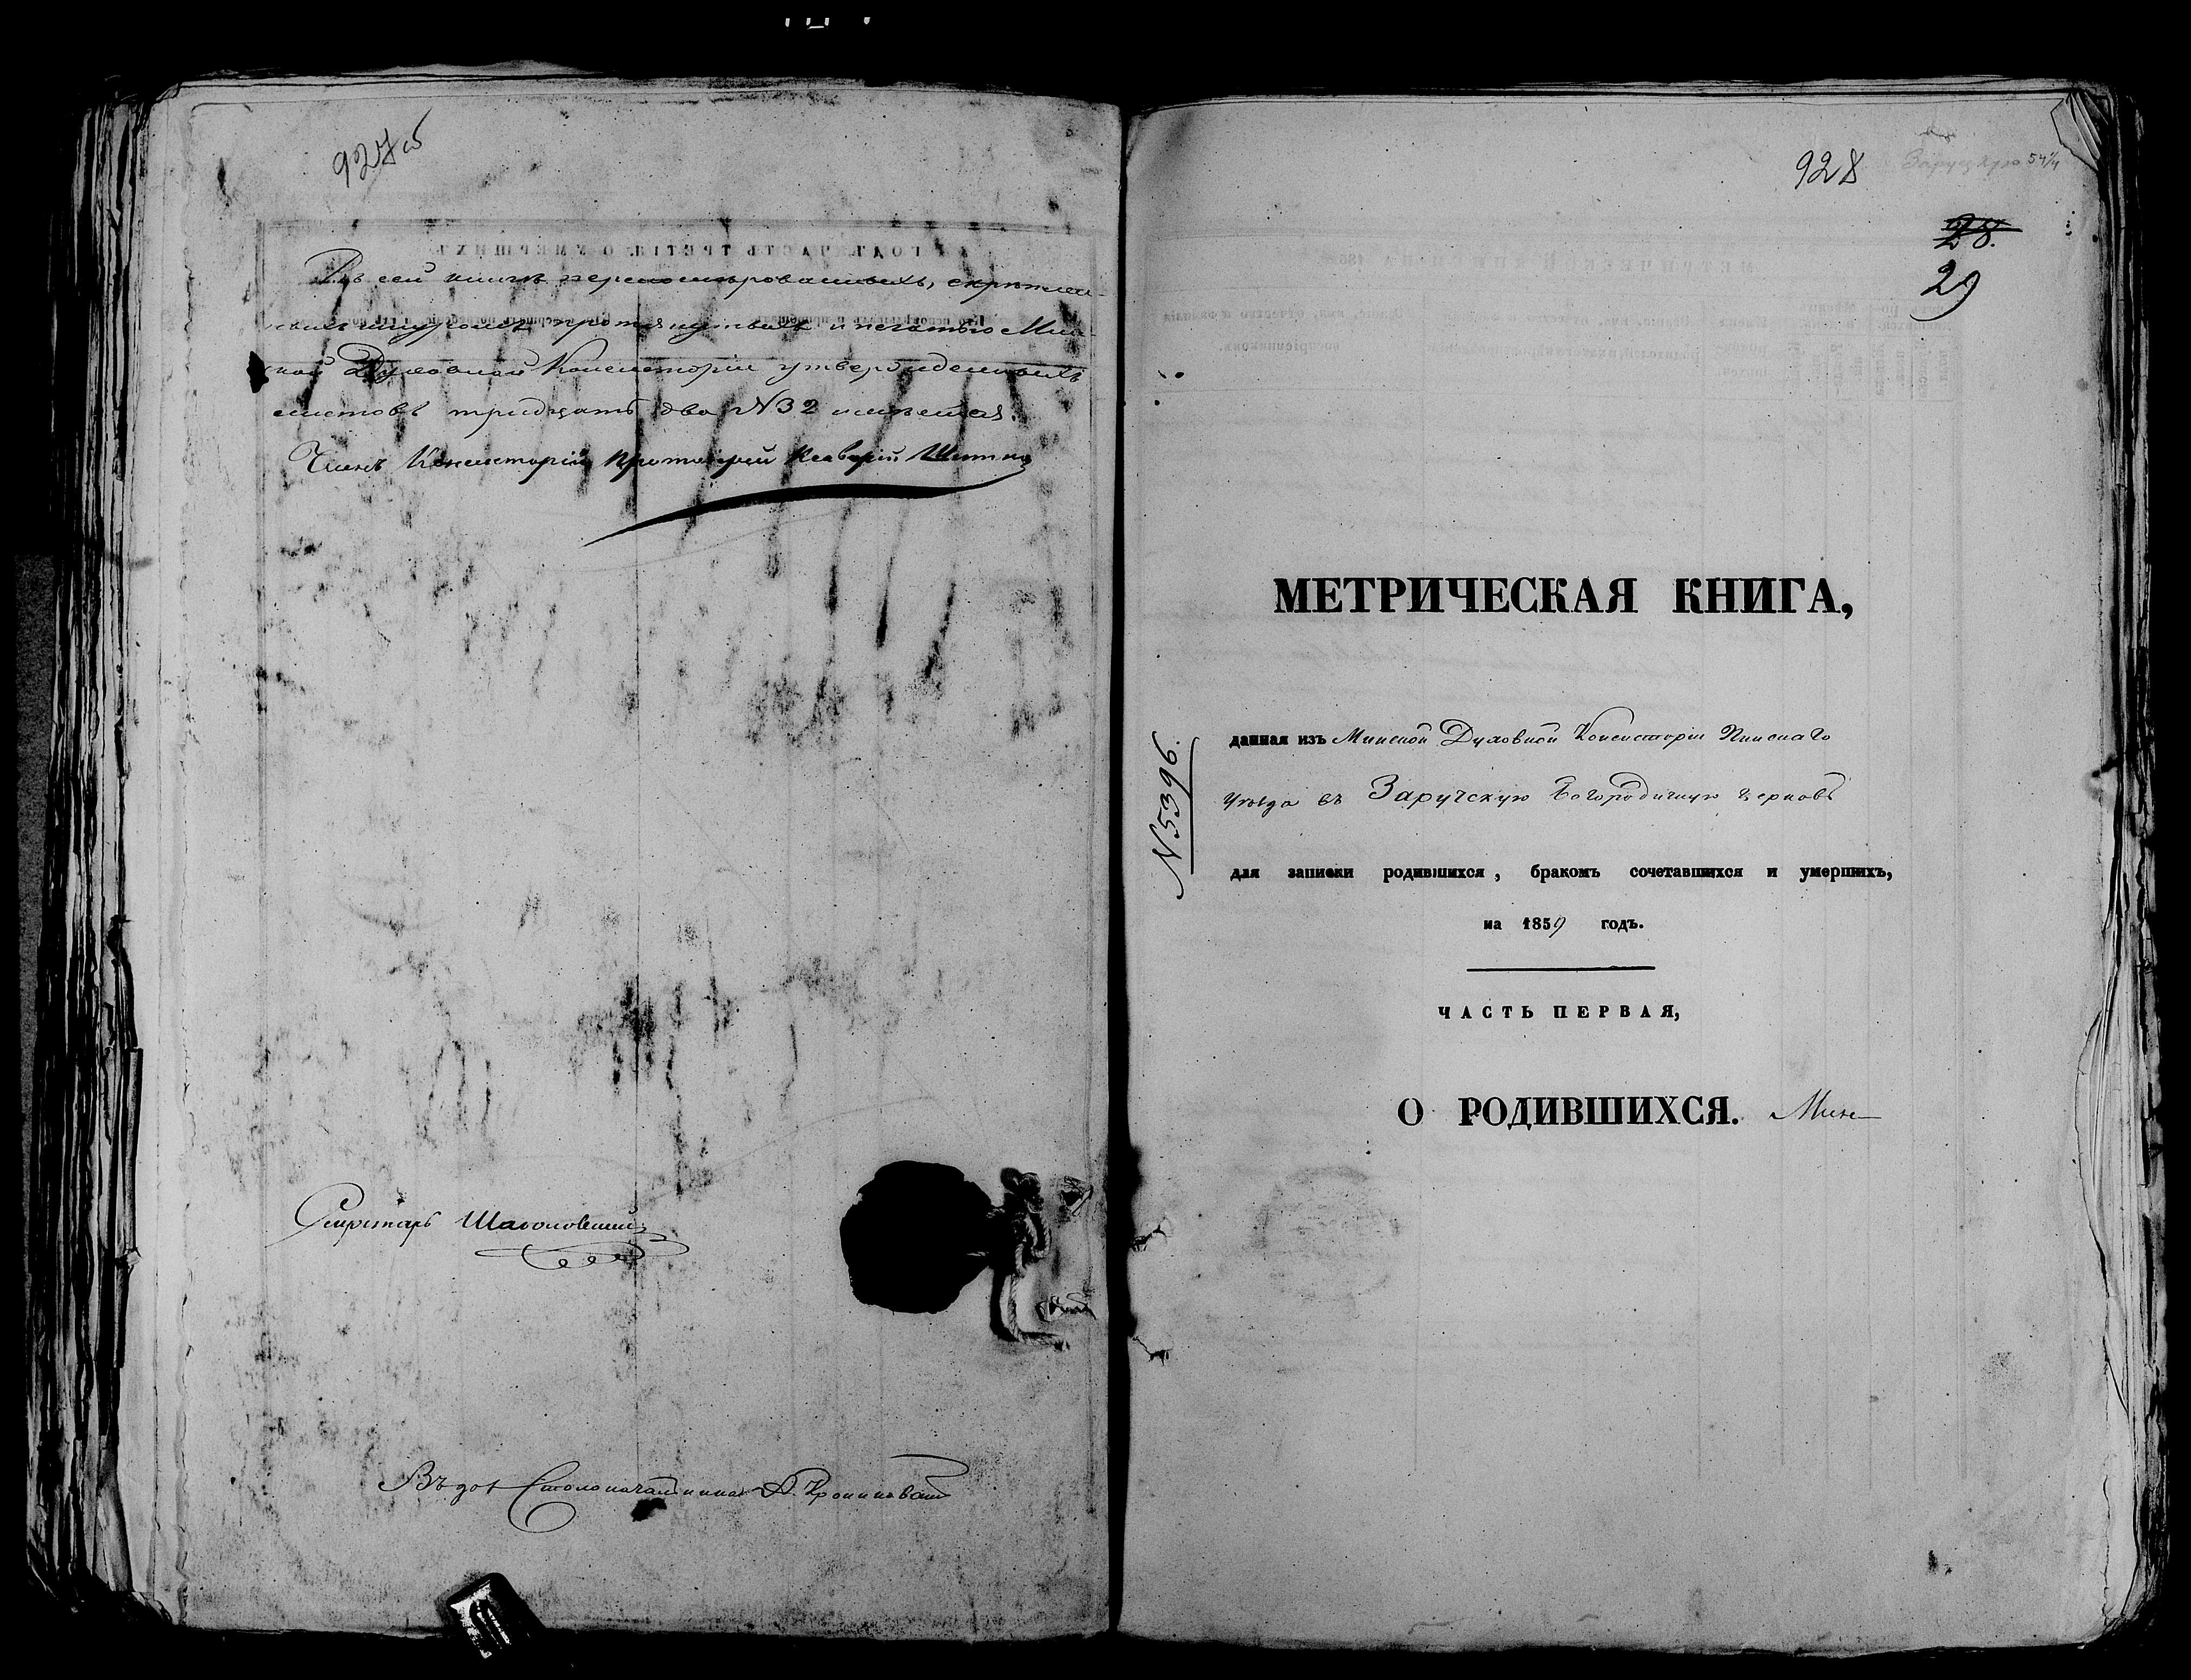 927 об
Въ сей книгѣ перенумерованныхъ, скрѣплен-
ныхъ шнуромъ протянутыхъ и печатью Мин-
ской Духовной Консисторіи утвержденныхъ
листовъ тридцать два №32 имѣется.
Членъ Консисторіи Протоіерей
Секретарь
Столоначальника
928
28.
29
МЕТРИЧЕСКАЯ КНИГА,
№5396.
данная изъ Минской Духовной Консисторіи Пинскаго
уѣзда въ Заручскую Богородичную церковь
для записки родившихся, бракомъ сочетавшихся и умершихъ,
на 1859 годъ.
ЧАСТЬ ПЕРВАЯ,
О РОДИВШИХСЯ. Мин